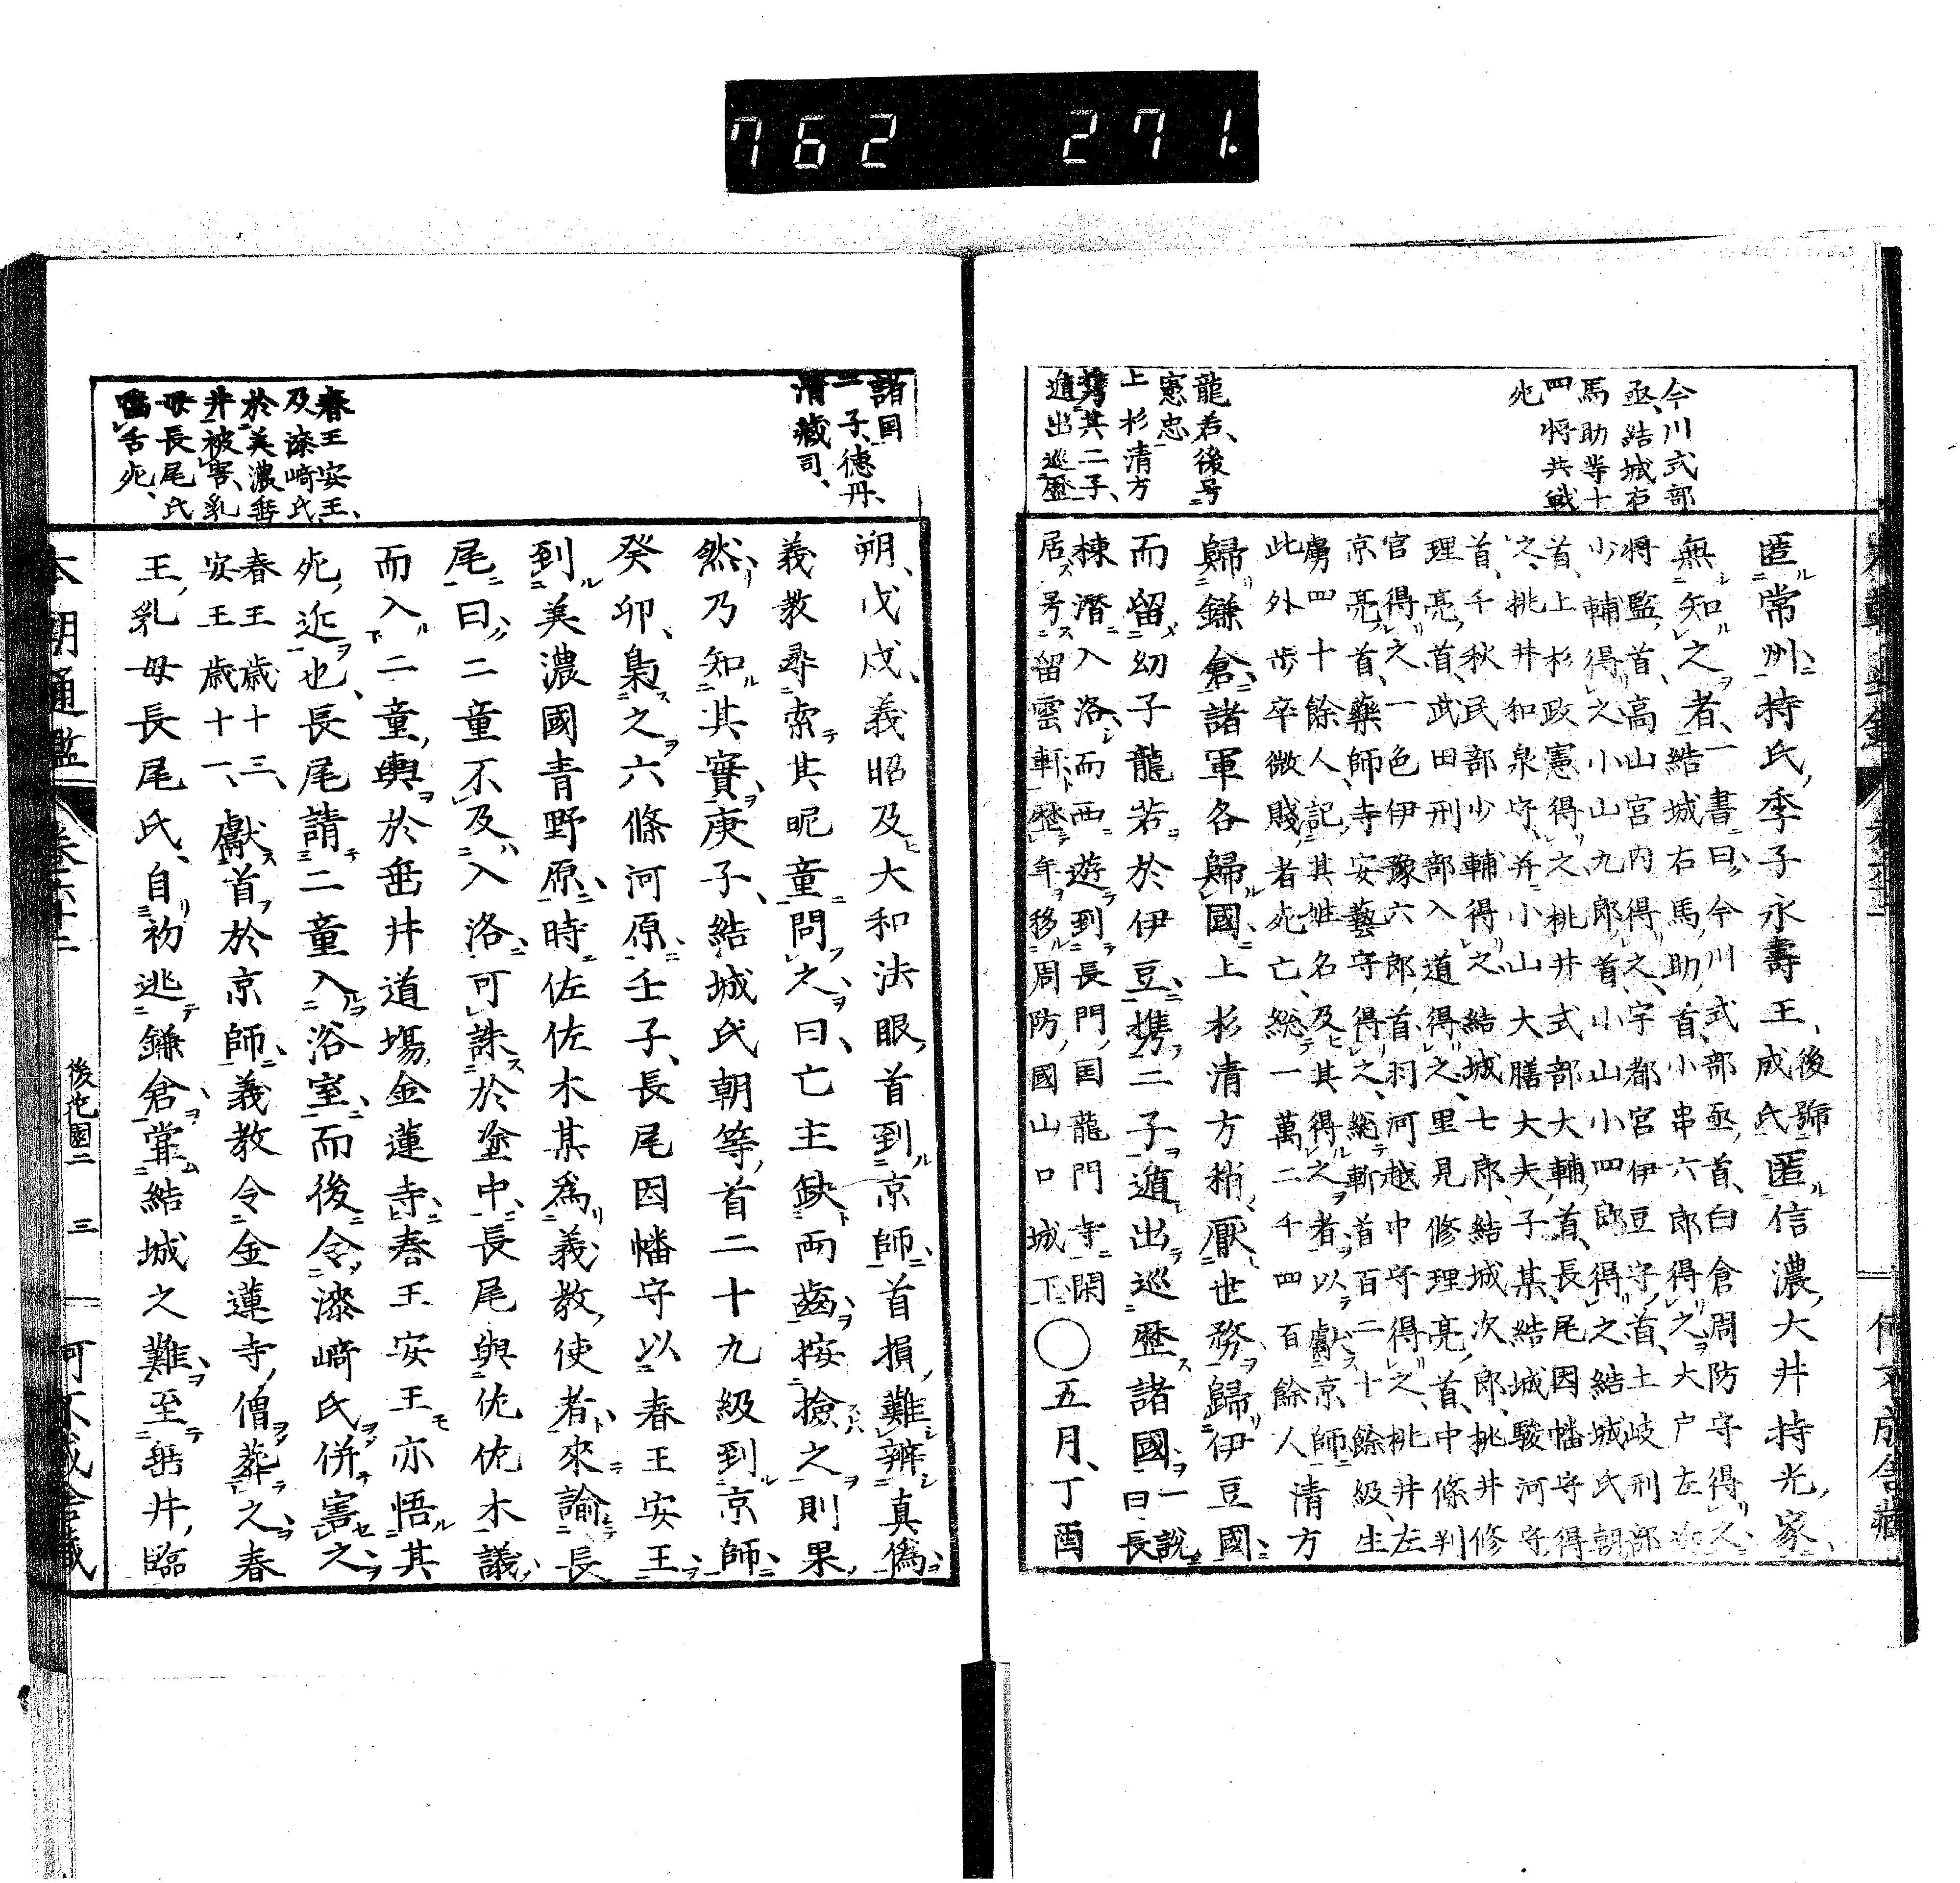 762 271.
今川式部
丞、結城右
馬助等十
四将共戦
死
龍若、後号
憲忠
上杉清方
携其二子、
遁出巡歴
匿常州、持氏、季子永壽王、後號成氏匿信濃、大井持光、家
無知之者、一書曰、今川式部丞、首、白倉周防守得之、
結城右馬助、首、小串六郎得之、大戸左近
将監、首、高山宮内得之、宇都宮伊豆守、首、土岐刑部
少輔得之、小山九郎、首、小山小四郎得之、結城氏朝
首、上杉政憲得之、桃井式部大輔、首、長尾因幡守得
之、桃井和泉守、并小山大膳大夫、子某、結城駿河守、
首、千秋民部少輔得之、結城七郎、結城次郎、桃井修
理亮、首、武田刑部入道得之、里見修理亮、首、中條判
官得之、一色伊豫六郎、首、羽河越中守得之、桃井左
京亮、首、藥師寺安藝守得之、總斬首百二十餘級、生
虜四十餘人、記其姓名及其得之者、以獻京師、清方
此外歩卒微賤、者死亡、総一萬二千四百餘人
歸鎌倉、諸軍各歸國、上杉清方稍厭世務、歸伊豆國、
而留幼子龍若於伊豆、携二子遁出巡歴諸國、一説曰、長
棟潛入洛、而西遊到長門国龍門寺閑
居号留雲軒、歴年移周防國山口城下〇五月、丁酉
諸国
二子、德丹、
清藏司、
春王安王、
及漆﨑氏、
於美濃垂
井被害、乳
母長尾氏
齧舌死、
朔、戊戌、義昭及大和法眼、首到京師、首損、難辨真偽、
義教尋索其昵童問之、曰、亡主缺両齒、按撿之則果、
然、乃知其實、庚子、結城氏朝等、首二十九級到京師、
癸卯、梟之六條河原、壬子、長尾因幡守以春王安王、
到美濃國青野原、時佐佐木某為義教、使者來諭長
尾曰、二童不及入洛、可誅於塗中、長尾與佐佐木議、
而入二童、輿於垂井道場、金蓮寺、春王安王亦悟其
死、近也、長尾請二童入浴室、而後令漆﨑氏併害之、
春王歳十三、安王歳十一、獻首、於京師、義教令金蓮寺、僧葬之、春
王、乳母長尾氏、自初逃鎌倉、嘗結城之難、至垂井、臨
本朝通鑑 卷六十二 後花園二 三